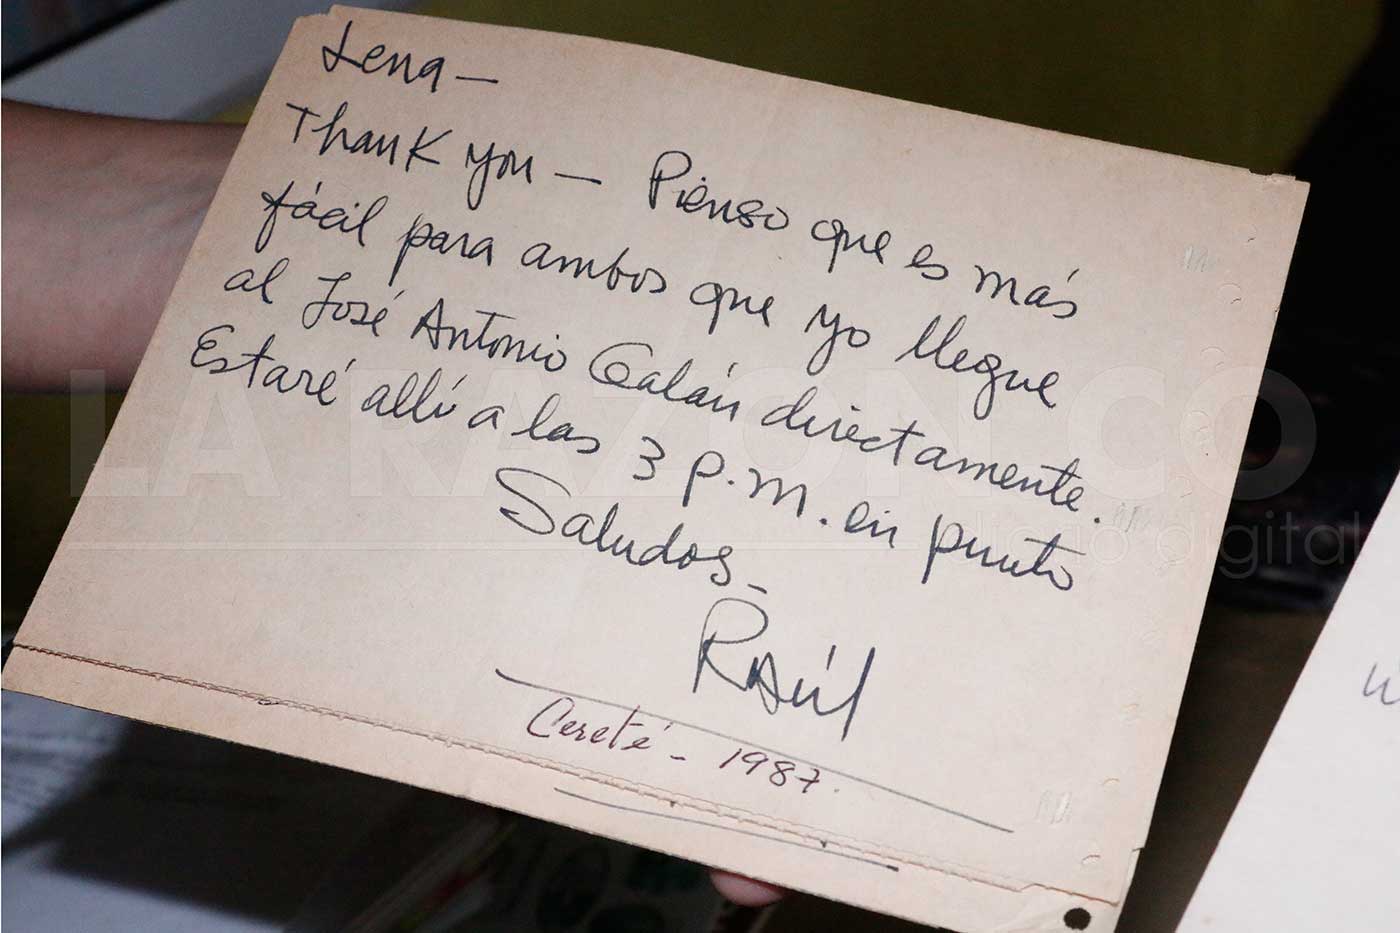 Lena —
Thank you — Pienso que es más
fácil para ambos que yo llegue
al José Antonio Galán directamente.
Estaré allí a las 3 p.m. en punto
Saludos —
Raúl
Cereté - 1987.
LA RAZON.CO
diario digital